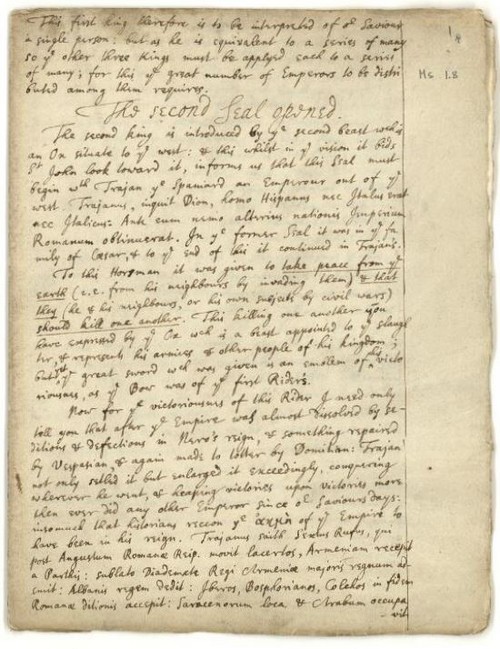 This first king therefore is to be interpreted of oʳ Saviour
a single person: but as he is equivalent to a series of many
so yᵉ other three kings must be applyed each to a series
of many; for this yᵉ great number of Emperors to be distri
buted among them requires.
The second Seal opened.
The second king is introduced by yᵉ second beast wᶜʰ is
an Ox situate to yᵉ west: & this whilst in yᵉ vision it bids
Sᵗ John look toward it, informs us that this Seal must
begin wᵗʰ Trajan yᵉ Spaniard an Emperour out of yᵉ
west. Trajanus, inquit Dion, homo Hispanus nec Italus erat
nec Italicus. Ante eum nemo alterius nationis Imperium
Romanum obtinuerat. In yᵉ former Seal it was in yᵉ fa
mily of Cæsar, & to yᵉ end of this it continued in Trajans.
To this Horsman it was given to take peace from yᵉ
earth (i.e. from his neighbours by invading them) & that
they (he & his neighbours, or his own subjects by civil wars)
should kill one another. This killing one another you
have expressed by yᵉ Ox wᶜʰ is a beast appointed to yᵉ slaugh
ter, & represents his armies & other people of his kingdom;
but yᵉ great sword wᶜʰ was given is an emblem of his victo
riousness, as yᵉ Bow was of yᵉ first Rider's.
Now for yᵉ victoriousness of this Rider I need only
tell you that after yᵉ Empire was almost dissolved by se
ditions & defections in Nero's reign, & something repaired
by Vespasian, & again made to totter by Domitian: Trajan
not only setled it but enlarged it exceedingly, conquering
wherever he went, & heaping victories upon victories more
then ever did any other Emperor since oʳ Saviours days:
insomuch that historians reccon yᵉ ἀκμὴ of yᵉ Empire to
have been in his reign. Trajanus saith Sextus Rufus, qui
post Augustum Romanæ Reip. movit lacertos, Armeniam recepit
a Parthis: sublato Diademate Regi Armeniæ majoris regnum ad
emit: Albanis regem dedit: Iberos, Bosphorianos, Colchos in fidem
Romanæ ditionis accepit: Saracenorum loca & Arabum occupa
vit
Ms 1.8